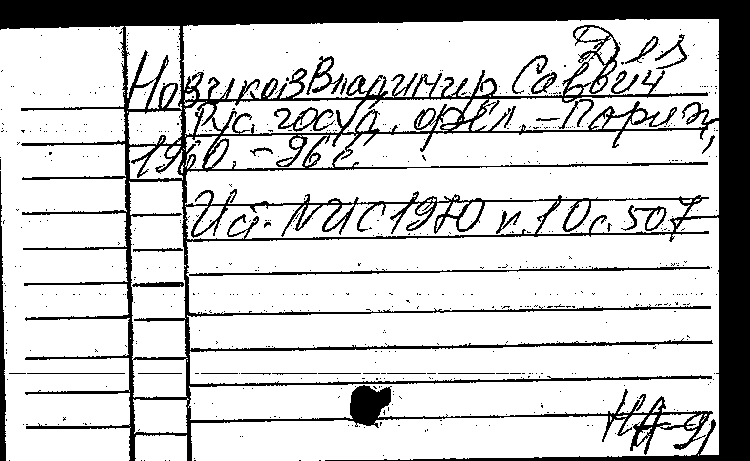 Дел
Новиков Владимир Саввич
Рус. госуд. орёл. - Париж,
1960. - 96 с.
Ист. NUC 1970 v.10 с. 507